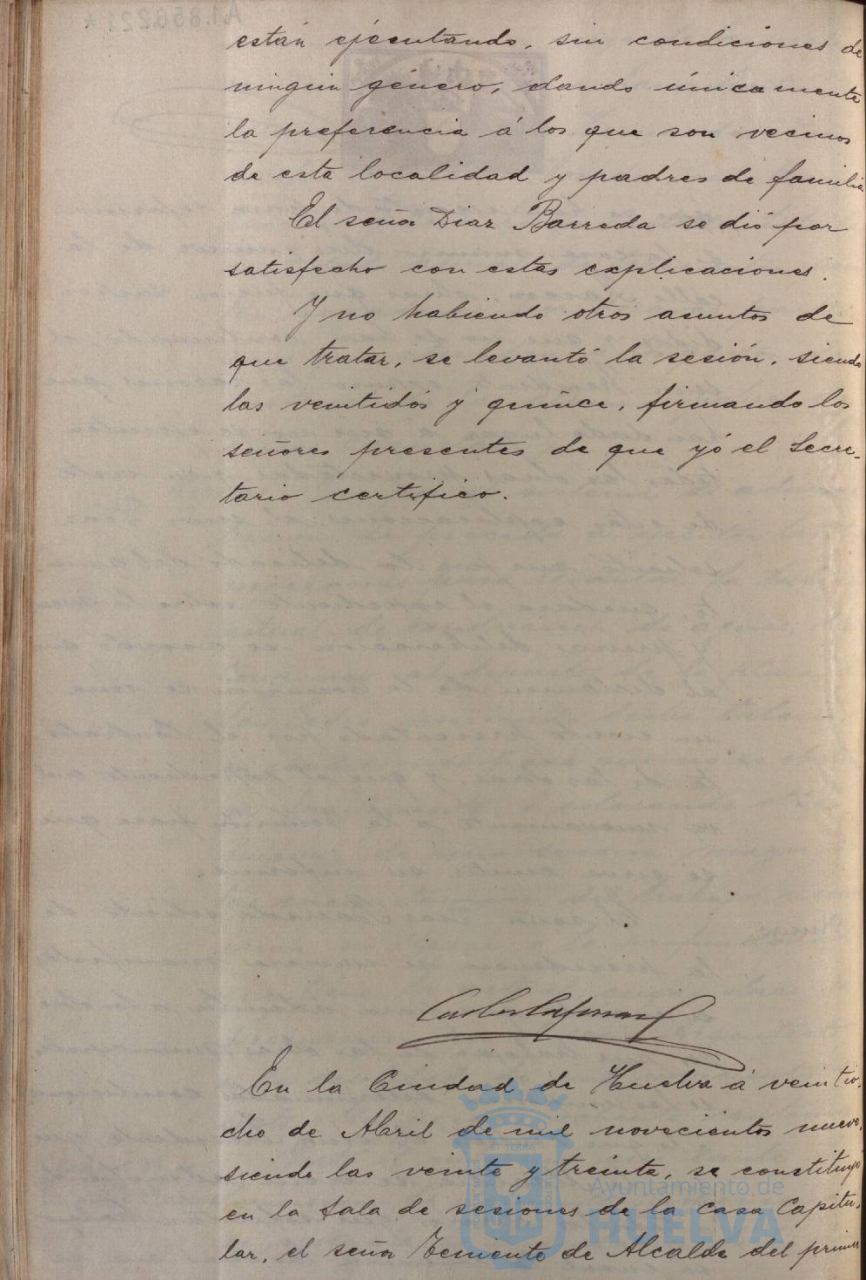 están ejecutando, sin condiciones de
ningún género, dando únicamente
la preferencia á los que son vecinos
de esta localidad y padres de familia
El señor Diaz Barreda se dió por
satisfecho con estas explicaciones.
Y no habiendo otros asuntos de
que tratar, se levantó la sesión, siendo
las veintidós y quince, firmando los
señores presentes de que yó el Secre-
tario certifico.
En la Ciudad de Huelva á veintio-
cho de Abril de mil novecientos nueve,
siendo las veinte y treinta, se constituyó
en la Sala de sesiones de la Casa Capitu-
lar, el señor Teniente de Alcalde del primer
Ayuntamiento de
HUELVA